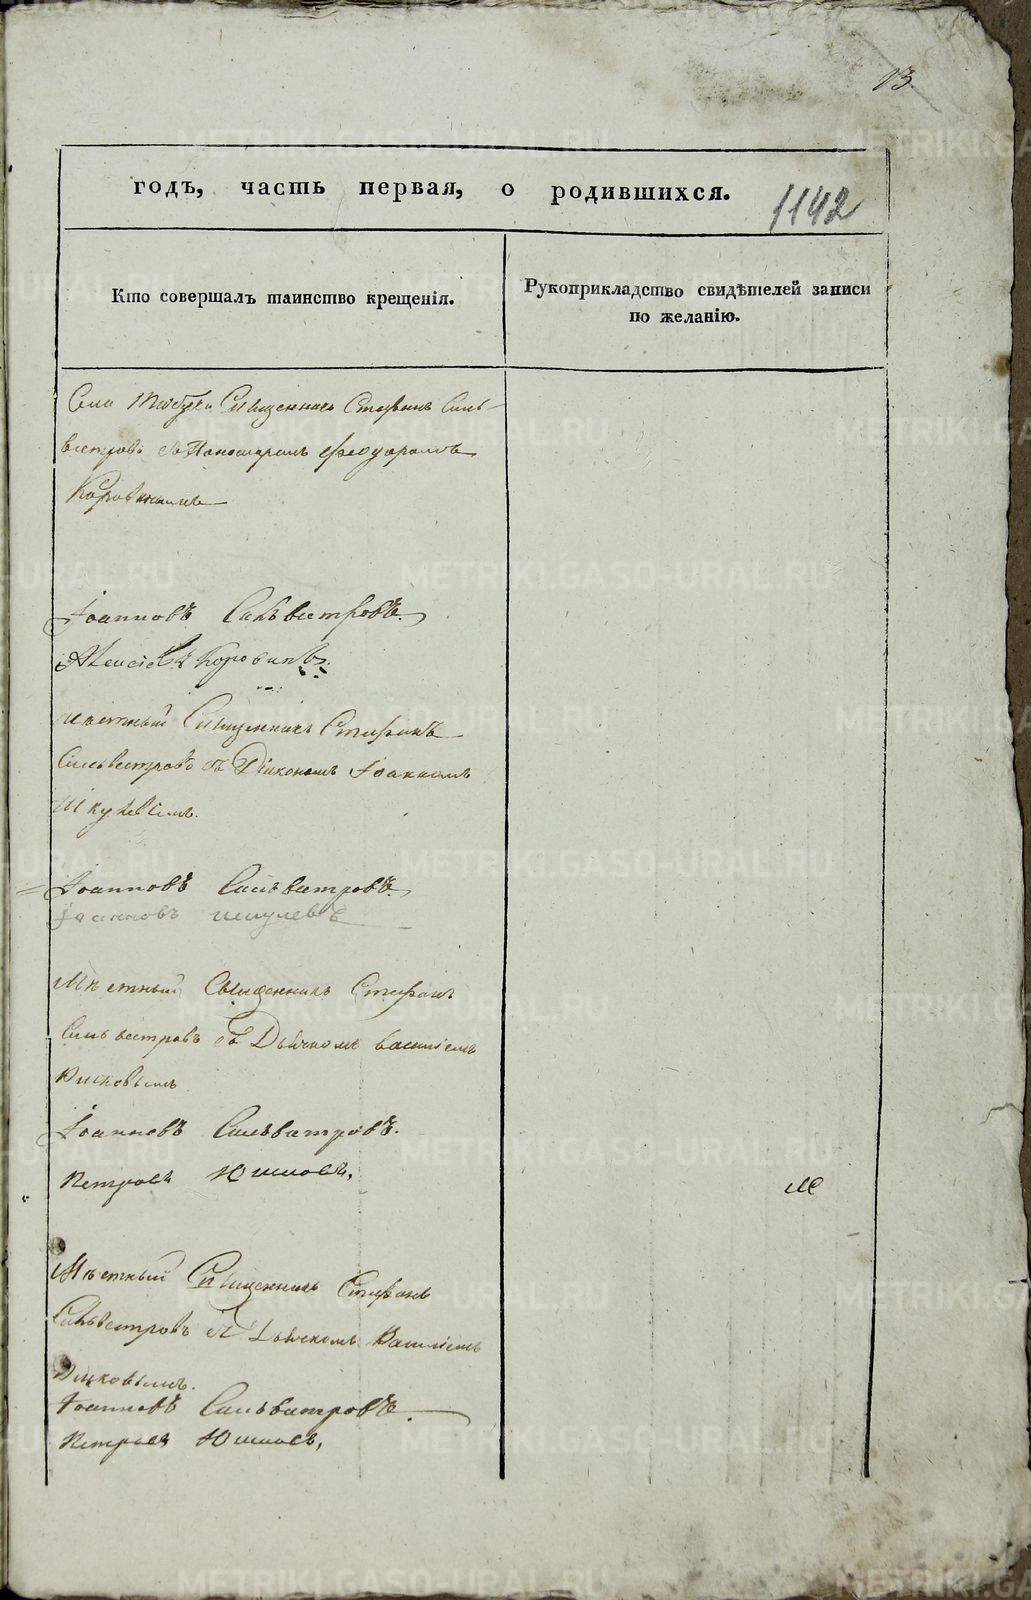 13.
годъ, часть первая, о родившихся.
1142
Кто совершалъ таинство крещенія.
Рукоприкладство свидѣтелей записи
по желанію.
Села Священникъ Стефанъ Силь-
вестровъ съ Пономаремъ Феодоромъ
Коровинымъ
Іоанновъ Сильвестровъ.
Алексіевъ Коровинъ.
мѣстный Священникъ Стефанъ
Сильвестровъ съ Діакономъ Іоанномъ
Іоанновъ Сильвестровъ.
Іоанновъ
Мѣстный Священникъ Стефанъ
Сильвестровъ съ Дьячкомъ Василіемъ
Іоанновъ Сильвестровъ.
Петровъ
Мѣстный Священникъ Стефанъ
Сильвестровъ съ Дьячкомъ Василіемъ
Іоанновъ Сильвестровъ.
Петровъ
METRIKI.GASO-URAL.RU